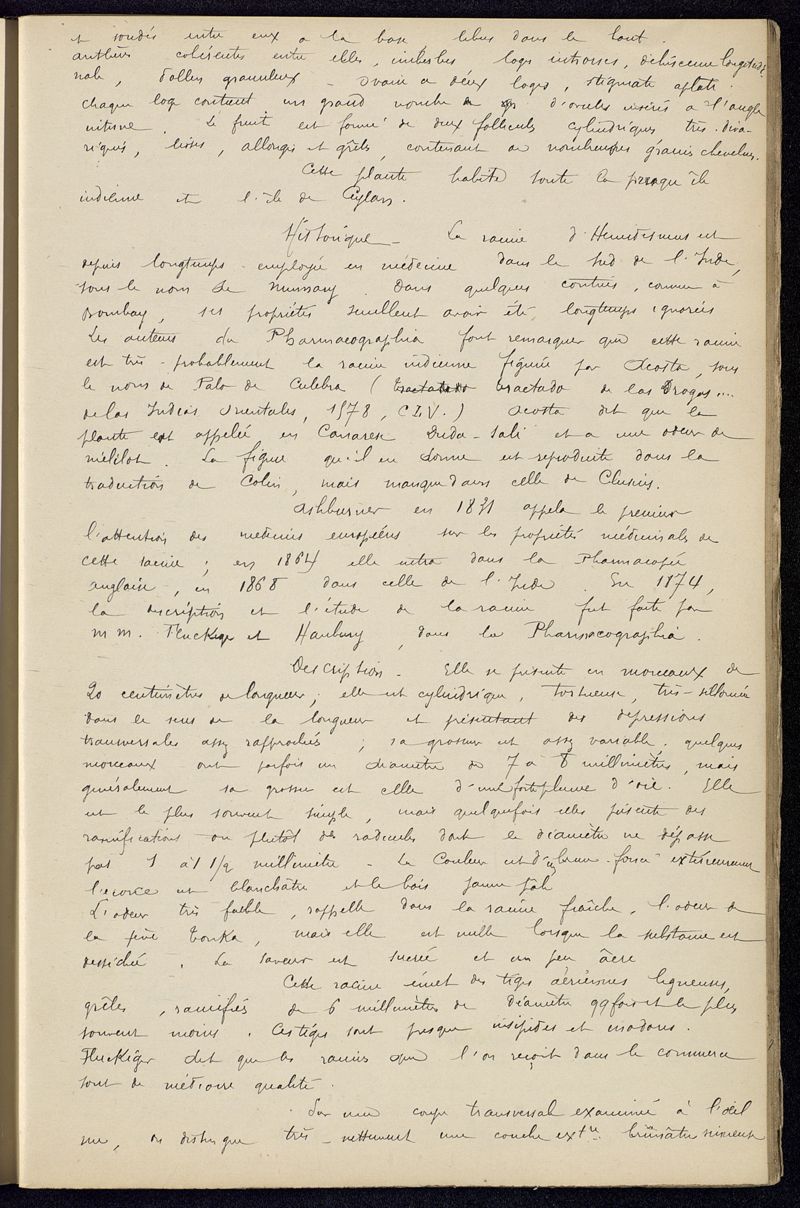 et soudés entre eux a la base libres dans le haut.
anthères cohérentes entre elles, imberbes loges introrses, déhiscence longitudi-
nale, pollen granuleux - ovaire a deux loges, stigmate aplati.
chaque loge contient un grand nombre d'ovules insérés a l'angle
interne. Le fruit est formé de deux follicules cylindriques très-diva-
riqués, lisses, allongés et grêles, contenant de nombreuses graines chevelues.
Cette plante habite toute la presqu'île
indienne et l'île de Ceylan.
Historique - La racine d'Hemidesmus est
depuis longtemps employée en médecine dans le Sud de l'Inde,
sous le nom de Nunnary. Dans quelques contrées, comme à
Bombay, ses propriétés semblent avoir été longtemps ignorées
Les auteurs du Pharmacographia font remarquer que cette racine
est très-probablement la racine indienne figurée par Acosta, sous
le nom de Palo de Culebra (tractado de las Drogas....
de las Indias Orientales, 1578, CLV.) Acosta dit que la
plante est appelée en Canarese Duda-Sali et a une odeur de
mélilot. La figure qu'il en donne est reproduite dans la
traduction de Colin, mais manque dans celle de Clusius.
Ashburner en 1831 appela le premier
l'attention des medecins européens sur les propriétés médicinales de
cette racine; en 1864 elle entra dans la Pharmacopée
anglaise, en 1868 dans celle de l'Inde. En 1874,
la description et l'étude de la racine fut faite par
MM. Fluckiger et Hanbury, dans la Pharmacographia.
Description - Elle se présente en morceaux de
20 centimètres de longueur; elle est cylindrique, tortueuse, très-sillonnée
dans le sens de la longueur et présentant des dépressions
transversales assez rapprochées; sa grosseur est assez variable. quelques
morceaux ont parfois un diamètre de 7 a 8 millimètres, mais
généralement sa grosseur est celle d'une forte plume d'oie. Elle
est le plus souvent simple, mais quelquefois elles présente des
ramifications ou plutôt des radicules dont le diamètre ne dépasse
pas 1 à 1 1/2 millimètre - La couleur est d'un brun-foncé extérieurement
l'écorce est blanchâtre et le bois jaune pâle
L'odeur très faible, rappelle dans la racine fraîche, l'odeur de
la fève tonka, mais elle est nulle lorsque la substance est
desséchée. La saveur est sucrée et un peu âcre
Cette racine émet des tiges aériennes ligneuses,
grêles, ramifiés de 6 millimètres de diamètre qqfois et le plus
souvent moins. Ces tiges sont presque insipides et inodores.
Fluckiger dit que les racines que l'on reçoit dans le commerce
sont de médiocre qualité.
Sur une coupe transversal examinée à l'œil
nu, on distingue très-nettement une couche extre brunâtre